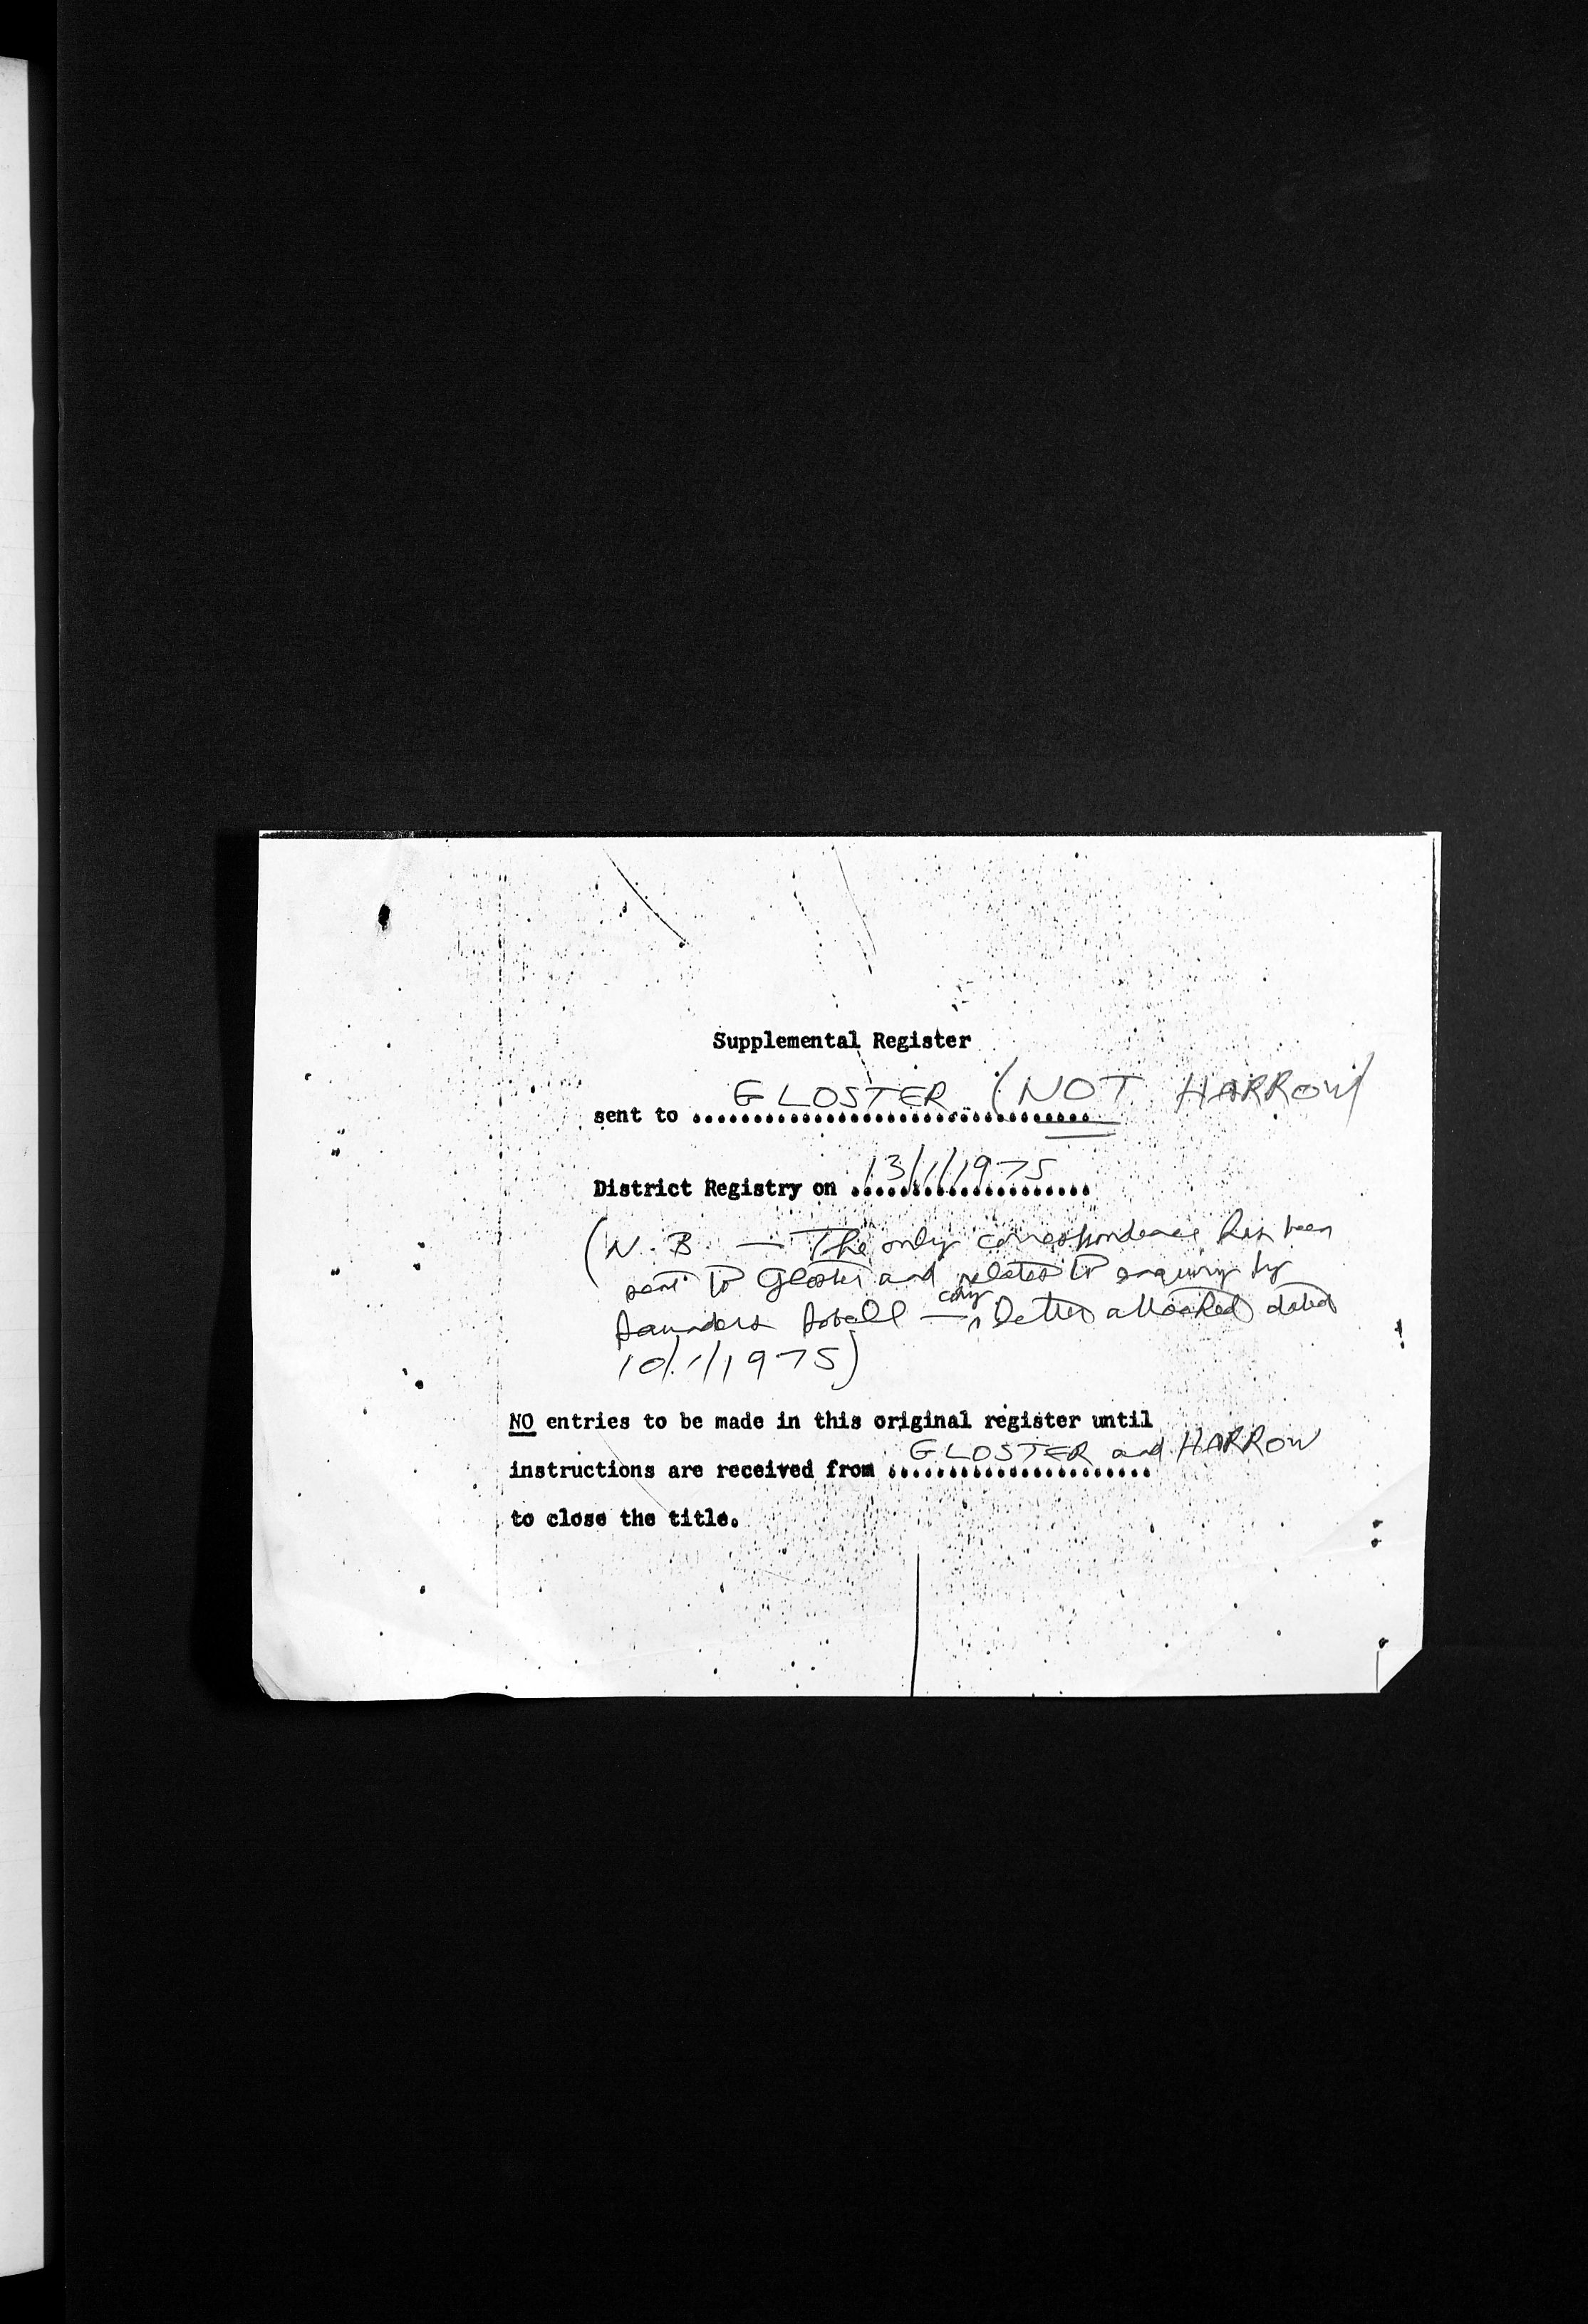 Supplemental Register
sent to GLOSTER (NOT HARROW)
District Registry on 13/1/1975
(N.B. — The only correspondence has been
sent to Gloster and relates to enquiry by
Saunders Sobell — copy letter attached dated
10/1/1975)
NO entries to be made in this original register until
instructions are received from GLOSTER and HARROW
to close the title.